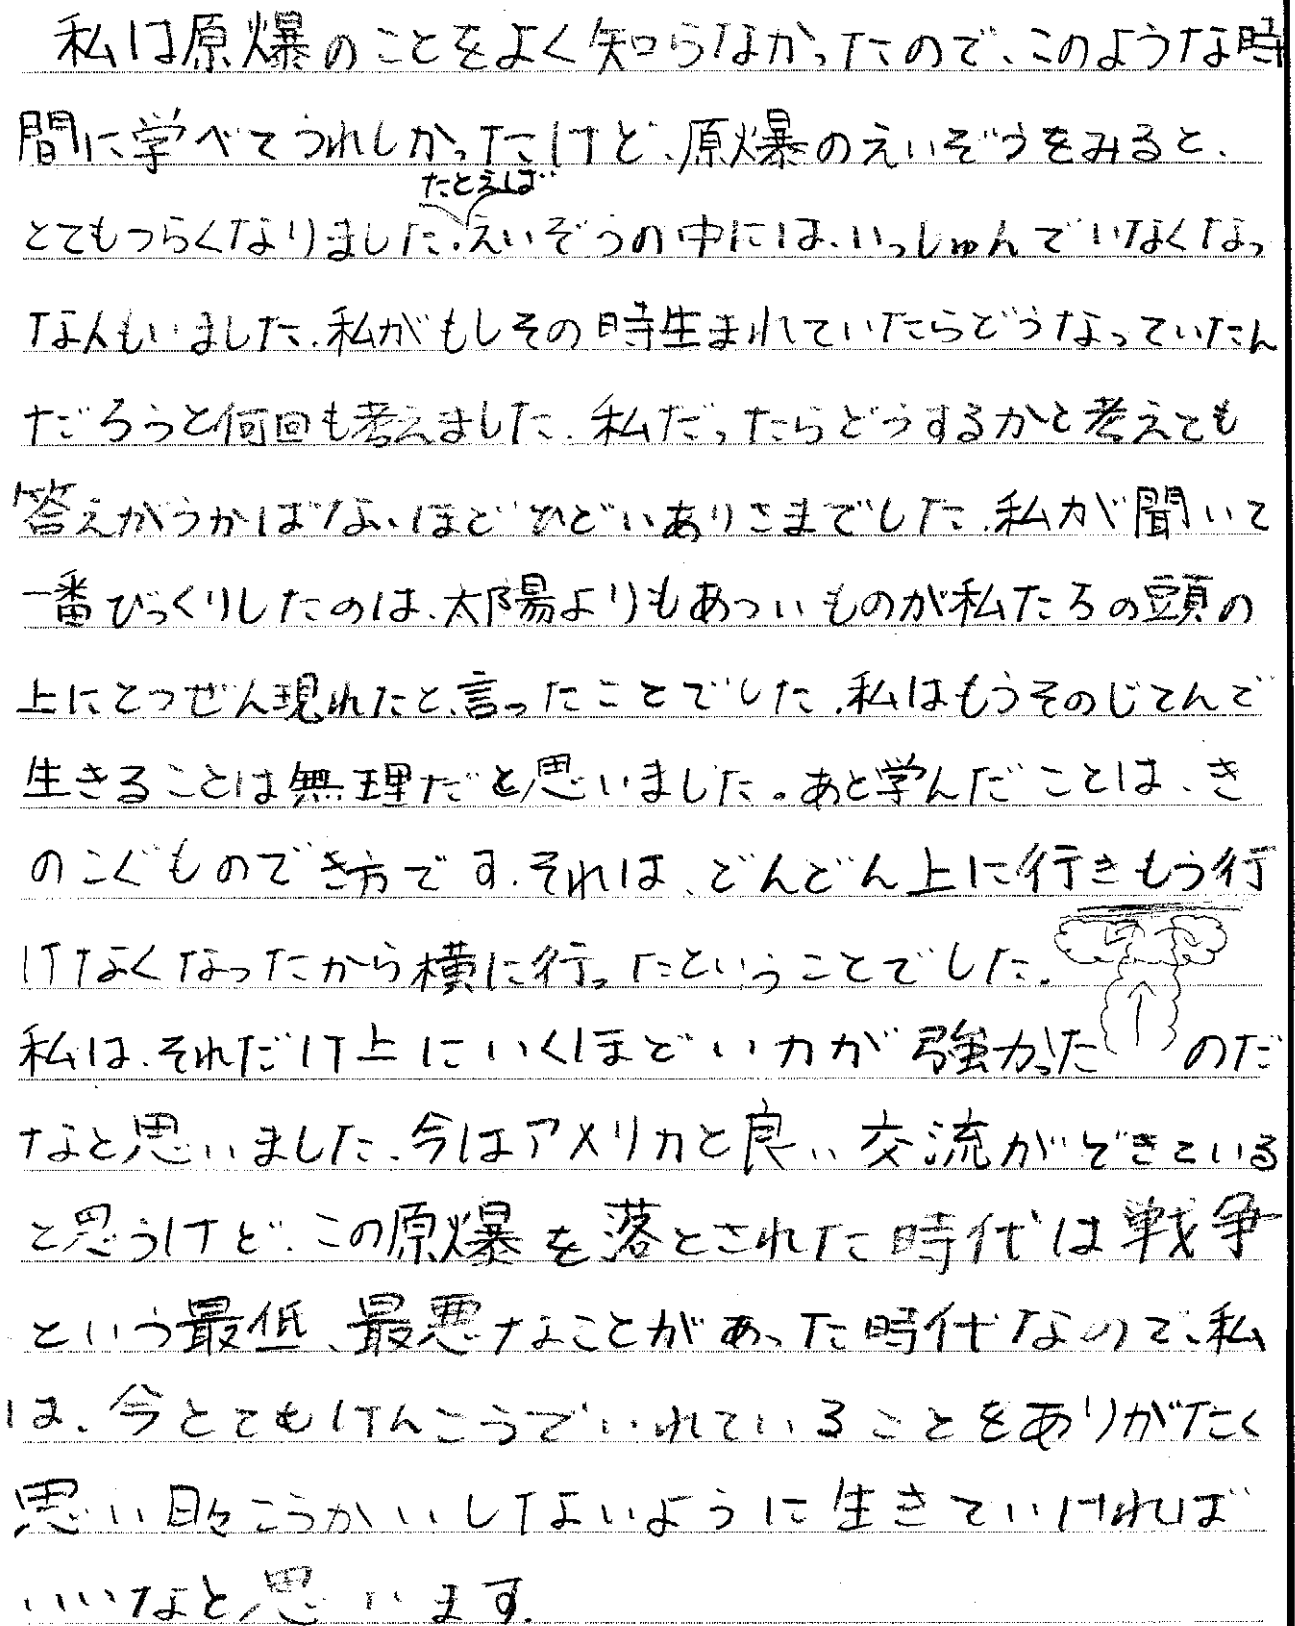 私は原爆のことをよく知らなかったので、このような時
間に学べてうれしかったけど、原爆のえいぞうをみると、
たとえば
とてもつらくなりました。えいぞうの中には、いっしゅんでいなくなっ
な人もいました。私がもしその時生まれていたらどうなっていたん
だろうと何回も考えました。私だったらどうするかと考えても
答えがうかばないほどひどいありさまでした。私が聞いて
一番びっくりしたのは、太陽よりもあついものが私たちの頭の
上にとつぜん現れたと言ったことでした。私はもうそのじてんで
生きることは無理だと思いました。あと学んだことは、き
のこぐものでき方です。それは、どんどん上に行きもう行
けなくなったから横に行ったということでした。
私は、それだけ上にいくほどい力が強かったのだ
なと思いました。今はアメリカと良い交流ができている
と思うけど、この原爆を落とされた時代は戦争
という最低、最悪なことがあった時代なので、私
は、今とてもけんこうでいれていることをありがたく
思い日々こうかいしないように生きていければ
いいなと思います。